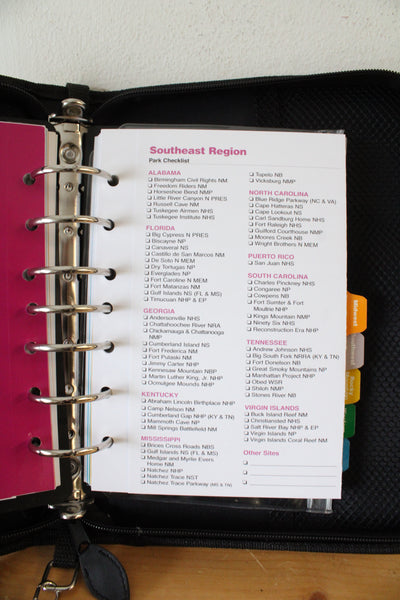 Southeast Region
Park Checklist
ALABAMA
Birmingham Civil Rights NM
Freedom Riders NM
Horseshoe Bend NMP
Little River Canyon N PRES
Russell Cave NM
Tuskegee Airmen NHS
Tuskegee Institute NHS
FLORIDA
Big Cypress N PRES
Biscayne NP
Canaveral NS
Castillo de San Marcos NM
De Soto N MEM
Dry Tortugas NP
Everglades NP
Fort Caroline N MEM
Fort Matanzas NM
Gulf Islands NS (FL & MS)
Timucuan NHP & EP
GEORGIA
Andersonville NHS
Chattahoochee River NRA
Chickamauga & Chattanooga
NMP
Cumberland Island NS
Fort Frederica NM
Fort Pulaski NM
Jimmy Carter NHP
Kennesaw Mountain NBP
Martin Luther King, Jr. NHP
Ocmulgee Mounds NHP
KENTUCKY
Abraham Lincoln Birthplace NHP
Camp Nelson NM
Cumberland Gap NHP (KY & TN)
Mammoth Cave NP
Mill Springs Battlefield NM
MISSISSIPPI
Brices Cross Roads NBS
Gulf Islands NS (FL & MS)
Medgar and Myrlie Evers
Home NM
Natchez NHP
Natchez Trace NST
Natchez Trace Parkway (MS & TN)
Tupelo NB
Vicksburg NMP
NORTH CAROLINA
Blue Ridge Parkway (NC & VA)
Cape Hatteras NS
Cape Lookout NS
Carl Sandburg Home NHS
Fort Raleigh NHS
Guilford Courthouse NMP
Moores Creek NB
Wright Brothers N MEM
PUERTO RICO
San Juan NHS
SOUTH CAROLINA
Charles Pinckney NHS
Congaree NP
Cowpens NB
Fort Sumter & Fort
Moultrie NHP
Kings Mountain NMP
Ninety Six NHS
Reconstruction Era NHP
TENNESSEE
Andrew Johnson NHS
Big South Fork NRRA (KY & TN)
Fort Donelson NB
Great Smoky Mountains NP
Manhattan Project NHP
Obed WSR
Shiloh NMP
Stones River NB
VIRGIN ISLANDS
Buck Island Reef NM
Christiansted NHS
Salt River Bay NHP & EP
Virgin Islands NP
Virgin Islands Coral Reef NM
Other Sites
Midwest